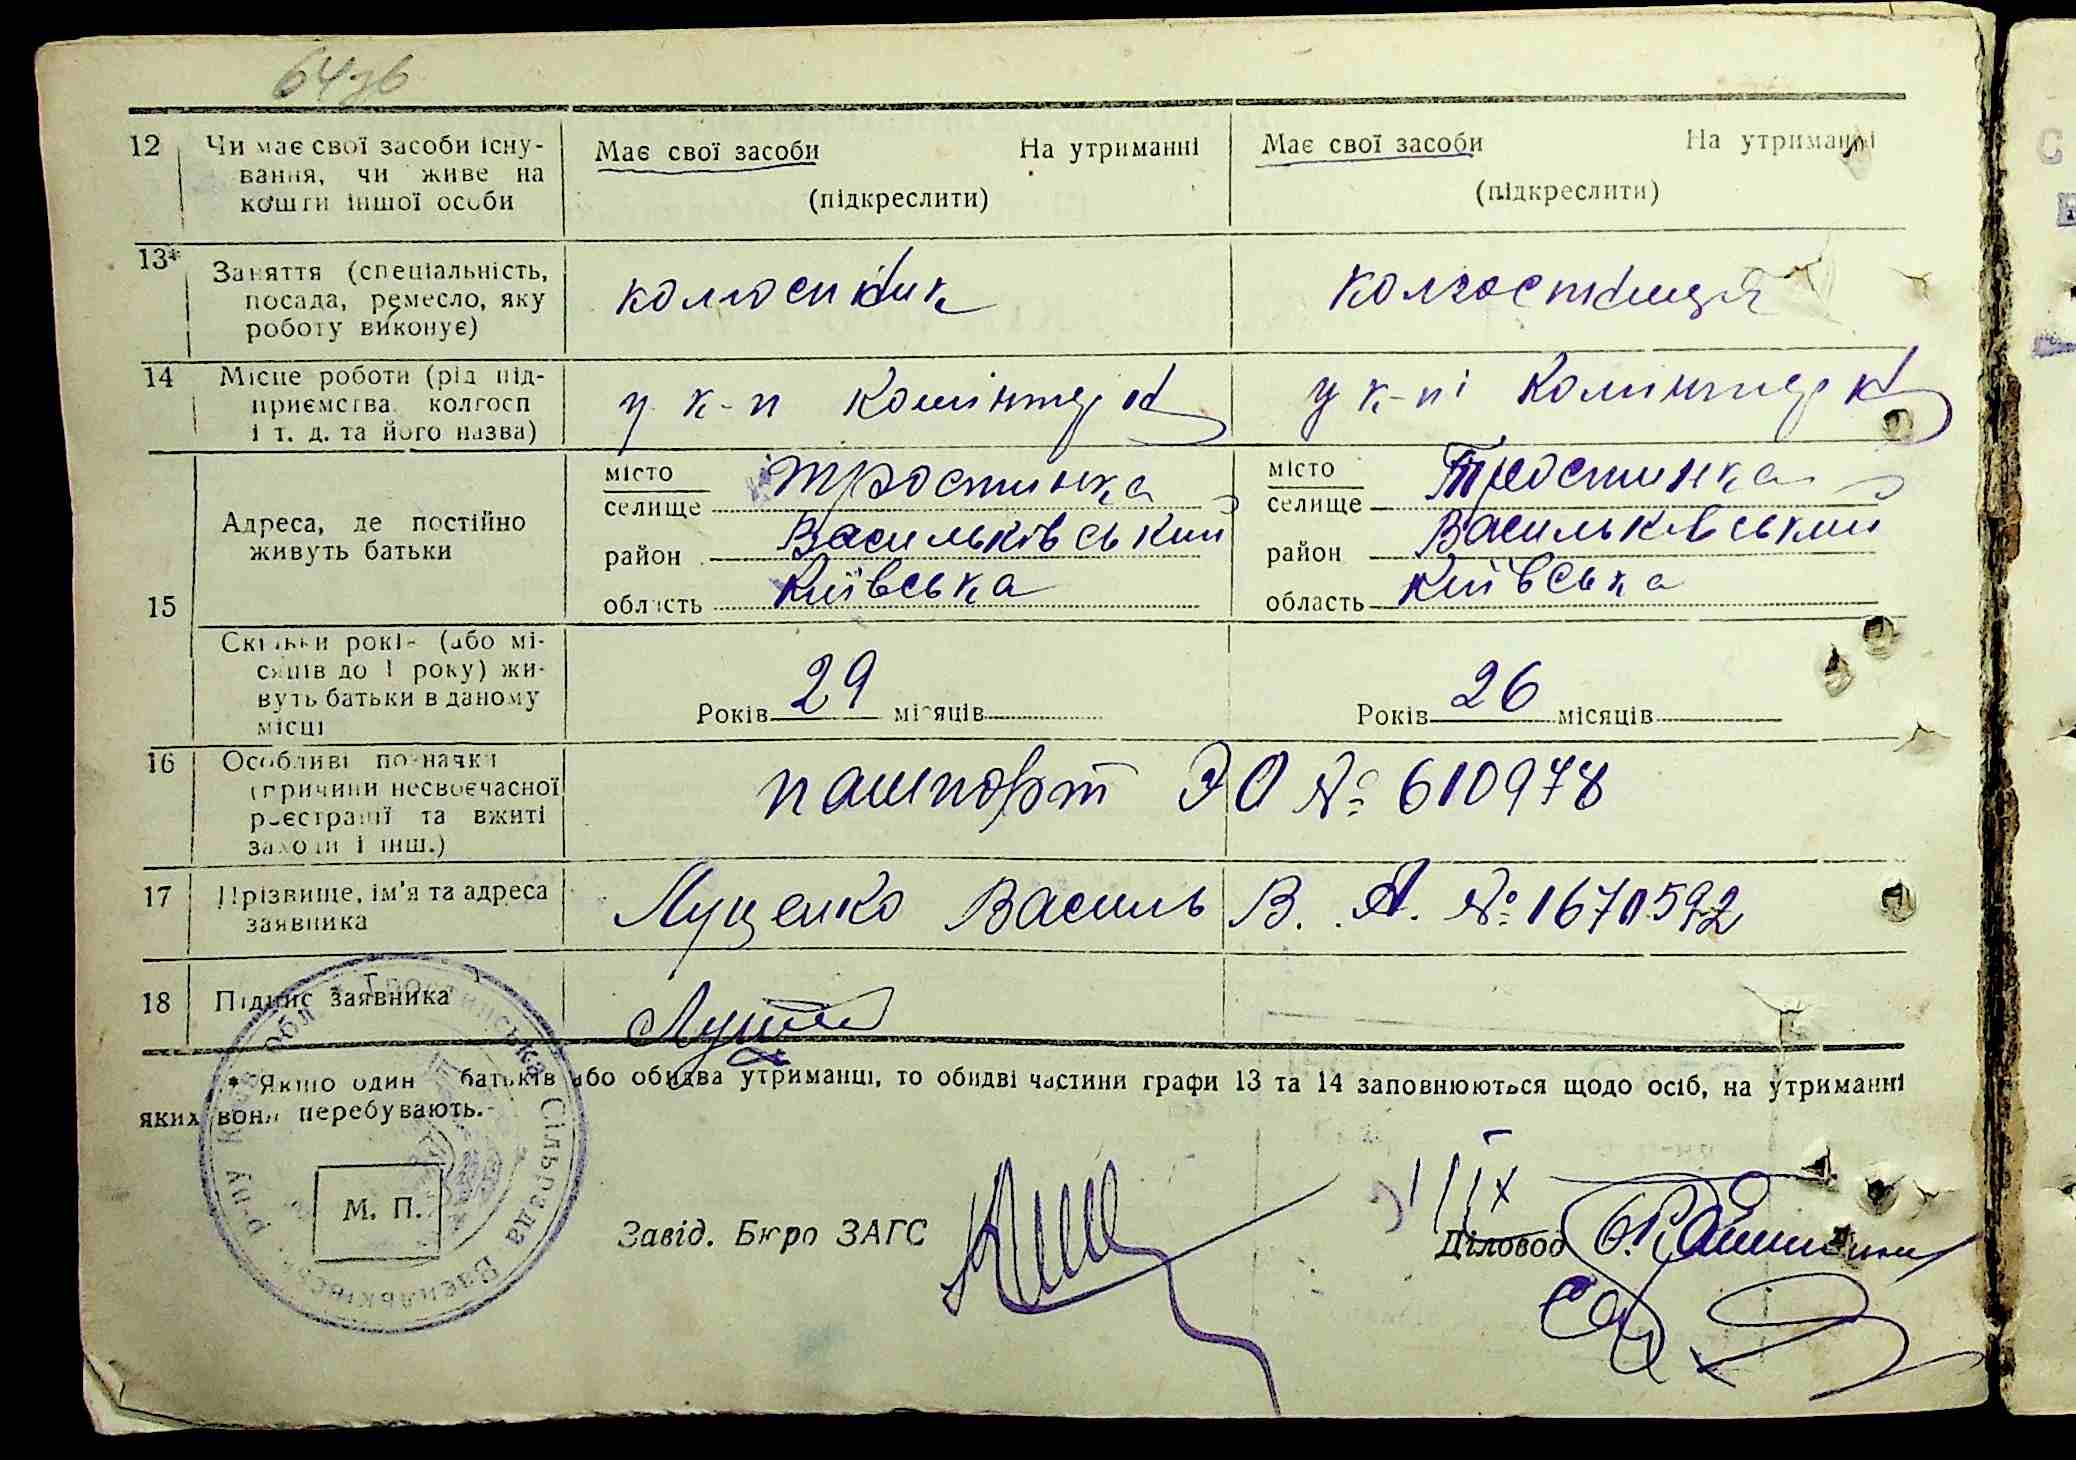 64зв
12 Чи має свої засоби існу- Має свої засоби На утриманні Має свої засоби На утриманні
вання, чи живе на
кошти іншої особи (підкреслити) (підкреслити)
13* Заняття (спеціальність, колгоспник колгоспниця
посада, ремесло, яку
роботу виконує)
14 Місце роботи (рід під- у к-п Комінтерн у к-пі Комінтерн
приємства, колгосп
і т. д. та його назва)
15 Адреса, де постійно живуть батьки
місто Тростинка місто Тростинка
селище селище
район Васильківський район Васильківський
область Київська область Київська
Скільки років (або мі-
сяців до 1 року) жи-
вуть батьки в даному Років 29 місяців Років 26 місяців
місці
16 Особливі позначки пашпорт ЭО № 610978
(причини несвоєчасної
реєстрації та вжиті
заходи і інш.)
17 Прізвище, ім'я та адреса Луценко Василь В. А. № 1670592
заявника
18 Підпис заявника
* Якщо один батьків або обидва утриманці, то обидві частини графи 13 та 14 заповнюються щодо осіб, на утриманні
яких вони перебувають.
Тростинська Сільрада Васильківськ. р-ну Київ обл
М. П.
Завід. Бюро ЗАГС Діловод